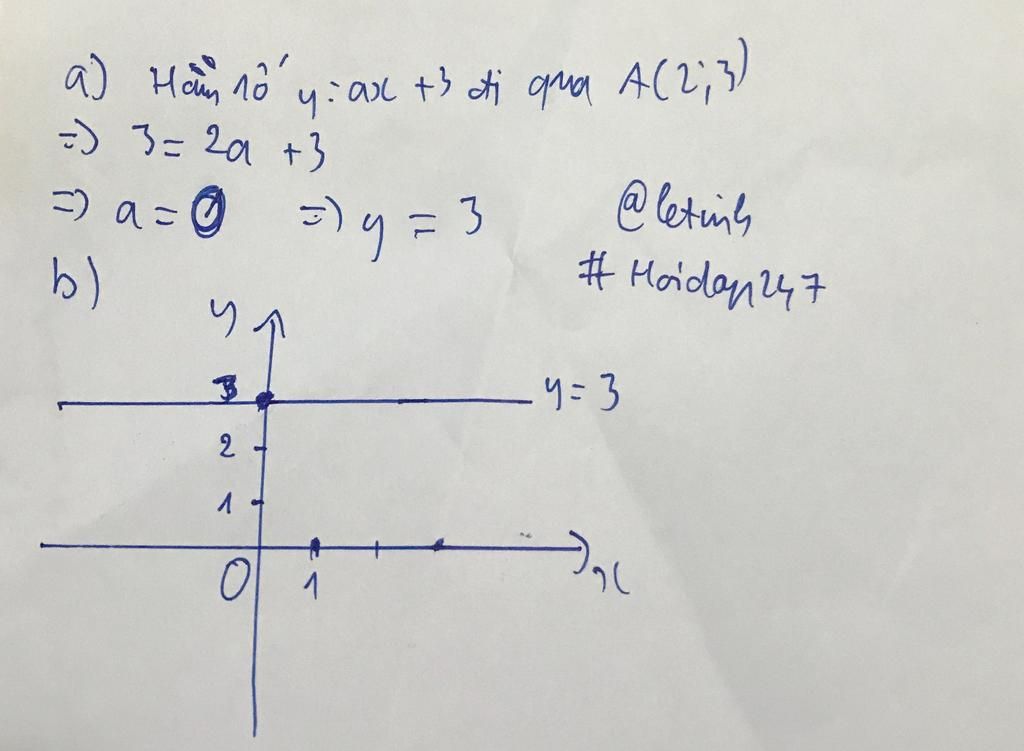 a) Hàm số y = ax + 3 đi qua A(2;3)
=> 3 = 2a + 3
=> a = 0 => y = 3
@letinh
#Hoidap247
b)
y
3
y = 3
2
1
O
1
x